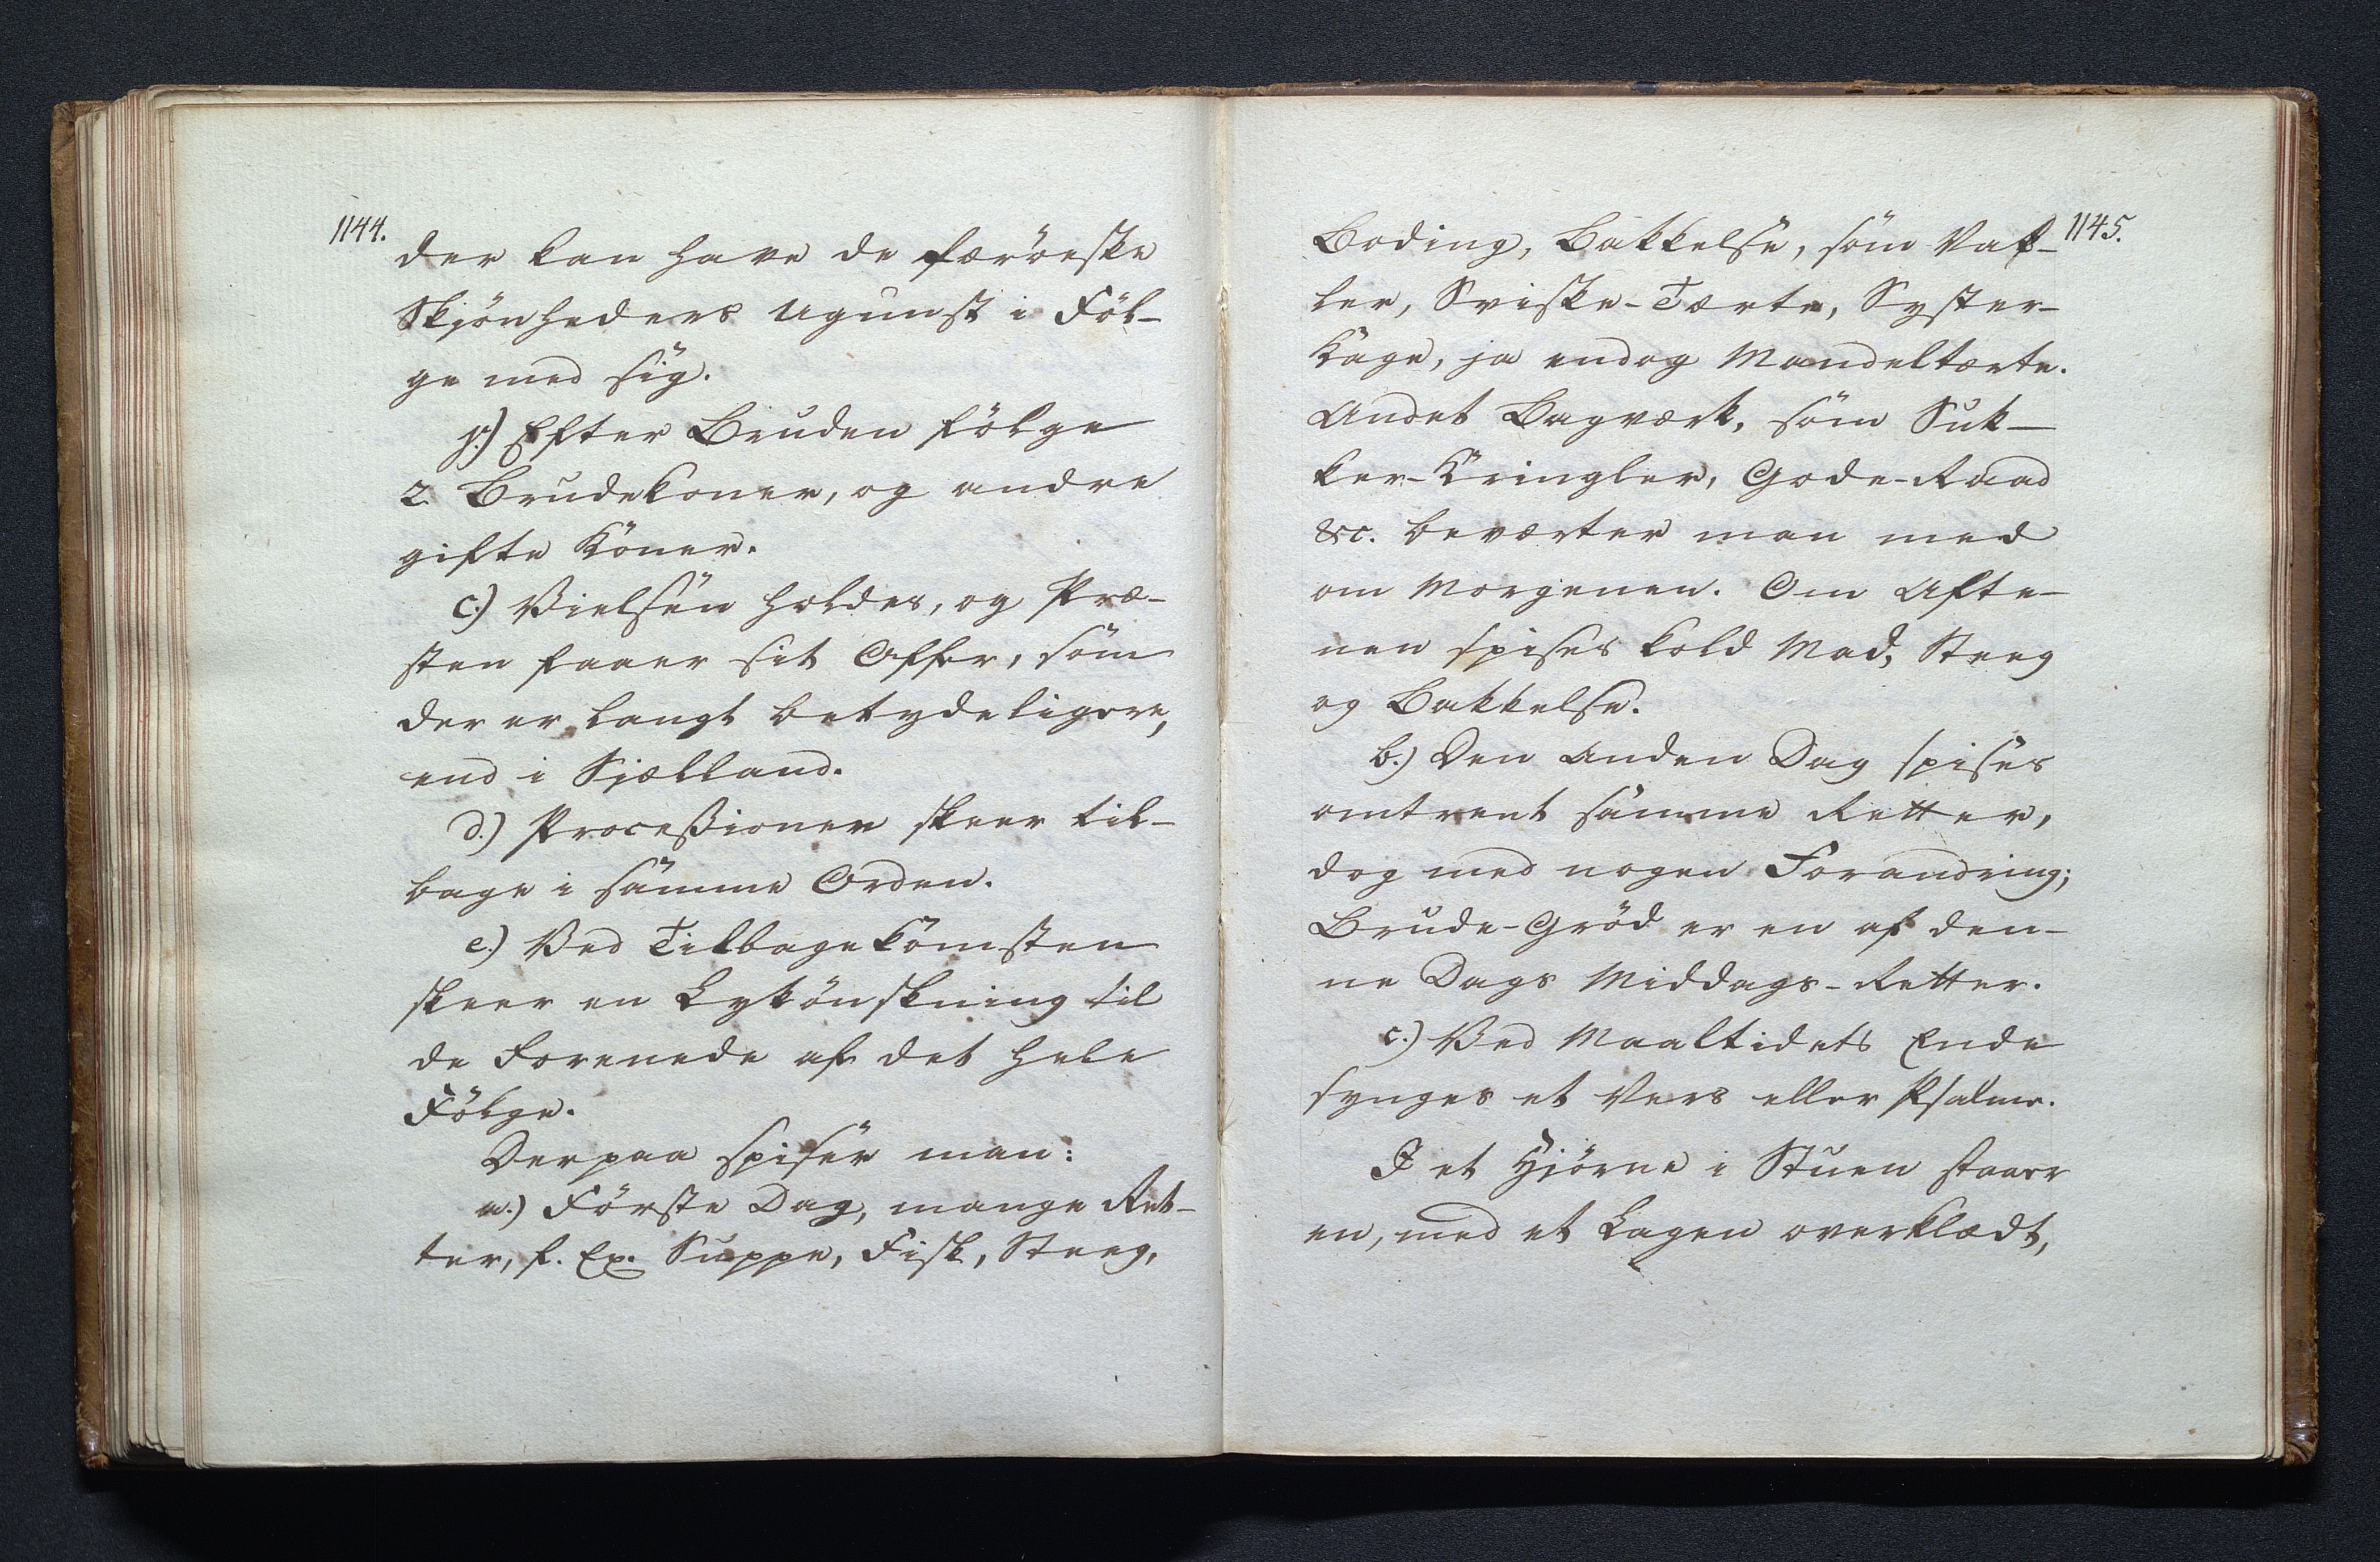 1144.
der kan have de færöeske
Skjönheders Ugunst i Föl-
ge med sig.
γ.) Efter Bruden fölge
2 Brudekoner, og andre
gifte Koner.
c.) Vielsen holdes, og Præ-
sten faaer sit Offer, som
der er langt betydeligere,
end i Sjælland.
d.) Processionen skeer til-
bage i samme Orden.
e.) Ved Tilbagekomsten
skeer en Lykönskning til
de Forenede af det hele
Fölge.
Derpaa spiser man:
a.) Förste Dag, mange Ret-
ter, f. Ex. Suppe, Fisk, Steeg,
1145.
Boding, Bakkelse, som Vaf-
ler, Sviske-Tærte, Syster-
Kage, ja endog Mandeltærte.
Andet Bagværk, som Suk-
ker-Kringler, Gode-Raad
&c. beværter man med
om Morgenen. Om Afte-
nen spises kold Mad, Steeg
og Bakkelse.
b.) Den Anden Dag spises
omtrent samme Retter,
dog med nogen Forandring;
Brude-Gröd er en af den-
ne Dags Middags-Retter.
c.) Ved Maaltidets Ende
synges et Vers eller Psalme.
I et Hjörne i Stuen staaer
en, med et Lagen overklædt,